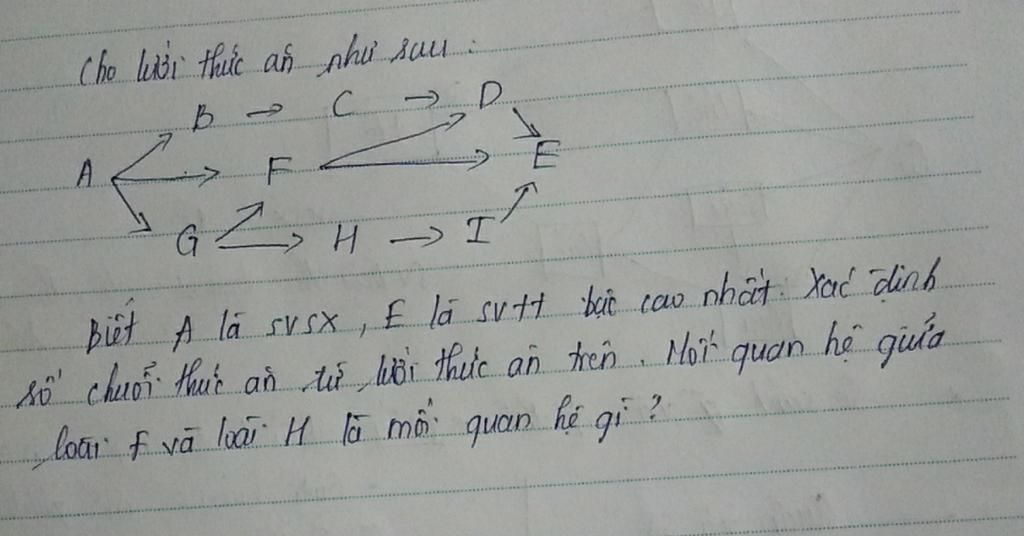 Cho lưới thức ăn như sau:
B → C → D
A → F → E
G → H → I
Biết A là svsx, E là svtt bậc cao nhất. Xác định
số chuỗi thức ăn từ lưới thức ăn trên. Mối quan hệ giữa
loài F và loài H là mối quan hệ gì?